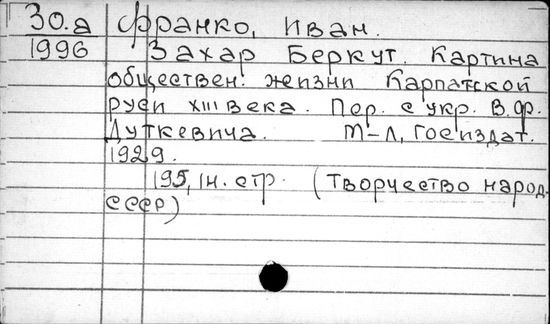 30.а Франко, Иван.
1996 Захар Беркут. Картина
обществен. жизни Карпатской
руси XIII века. Пер. с укр. В.Ф.
Дуткевича. М-Л, Госиздат.
1929.
195, 1н. стр. (Творчество народ.
СССР)